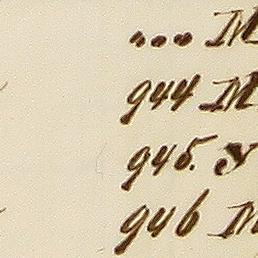 ... M
944 M
945. У
946 M